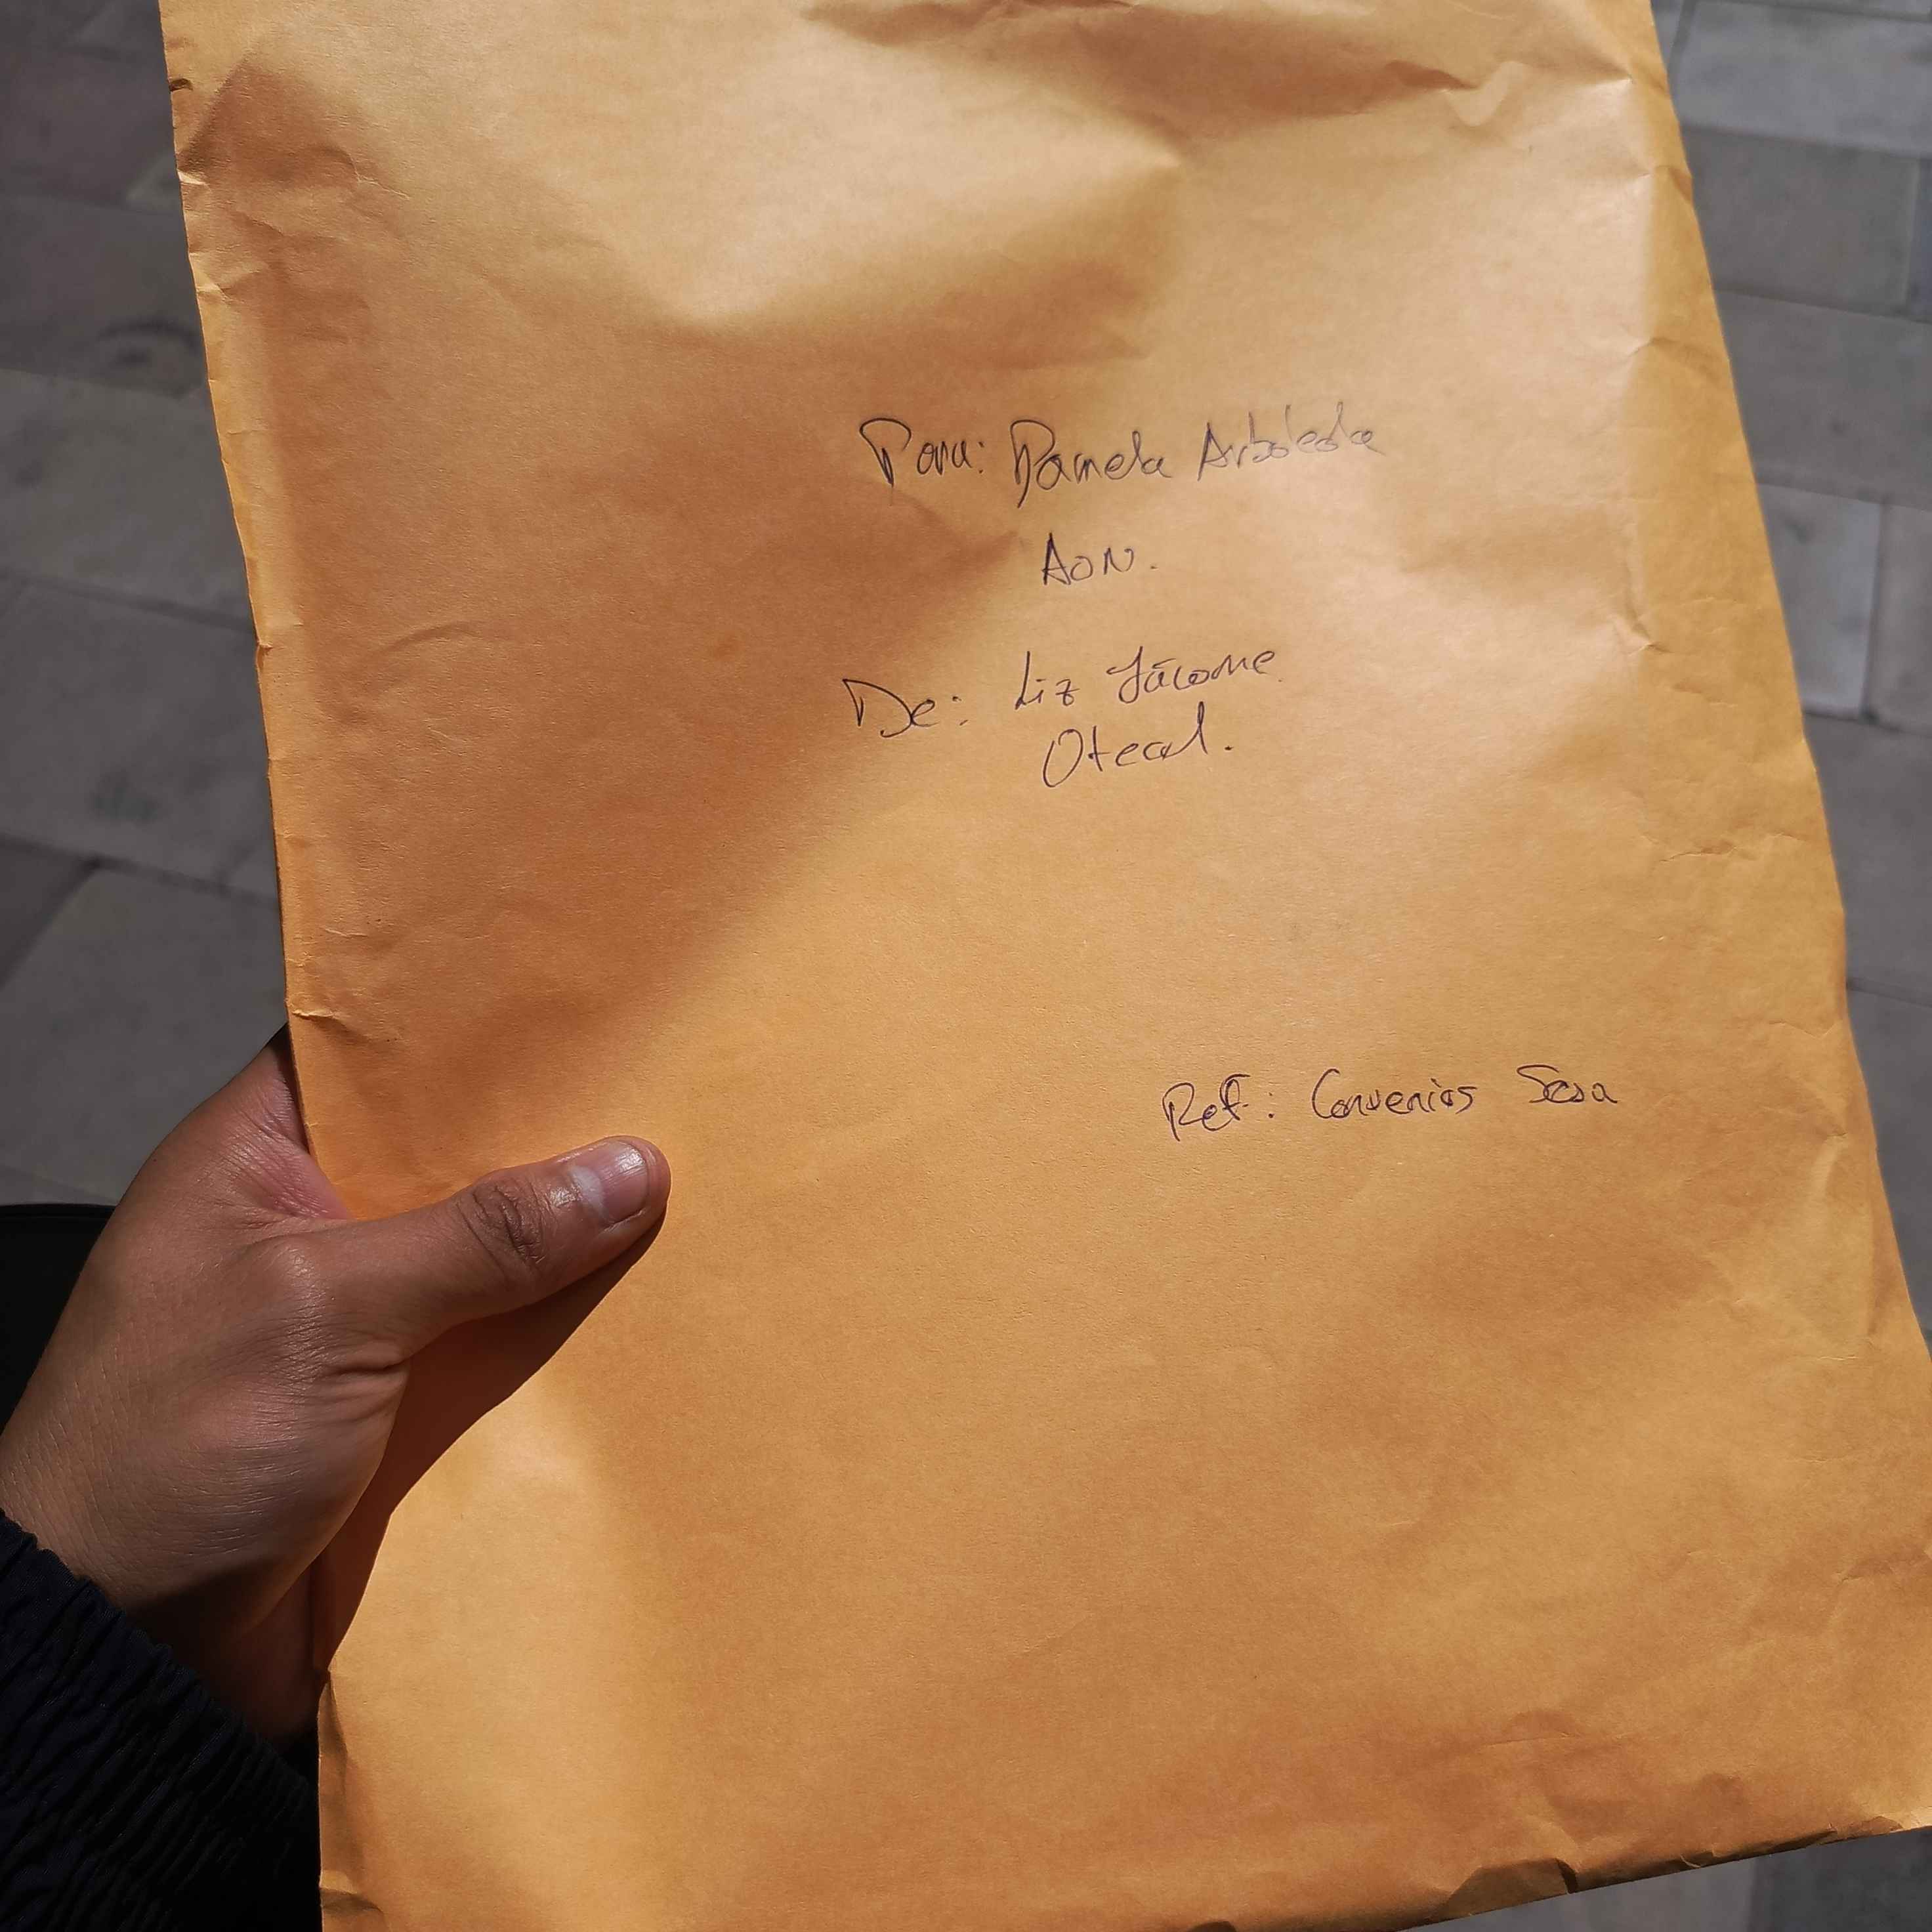 Para: Pamela Arboleda
AON.
De: Liz Jácome
Otecel.
Ref: Convenios Sesa